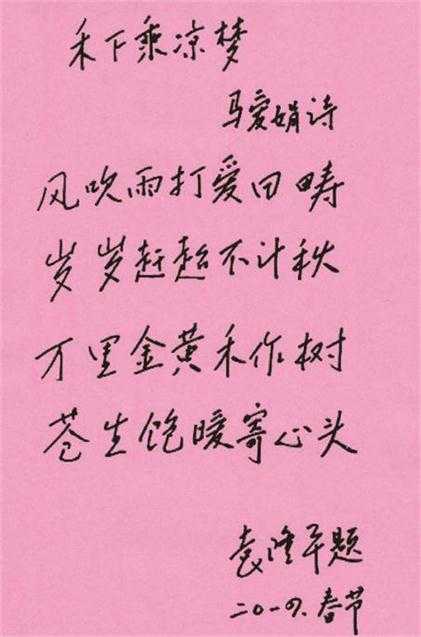 禾下乘凉梦
马爱娟诗
风吹雨打爱田畴
岁岁赶超不计秋
万里金黄禾作树
苍生饱暖寄心头
袁隆平题
二〇一四.春节